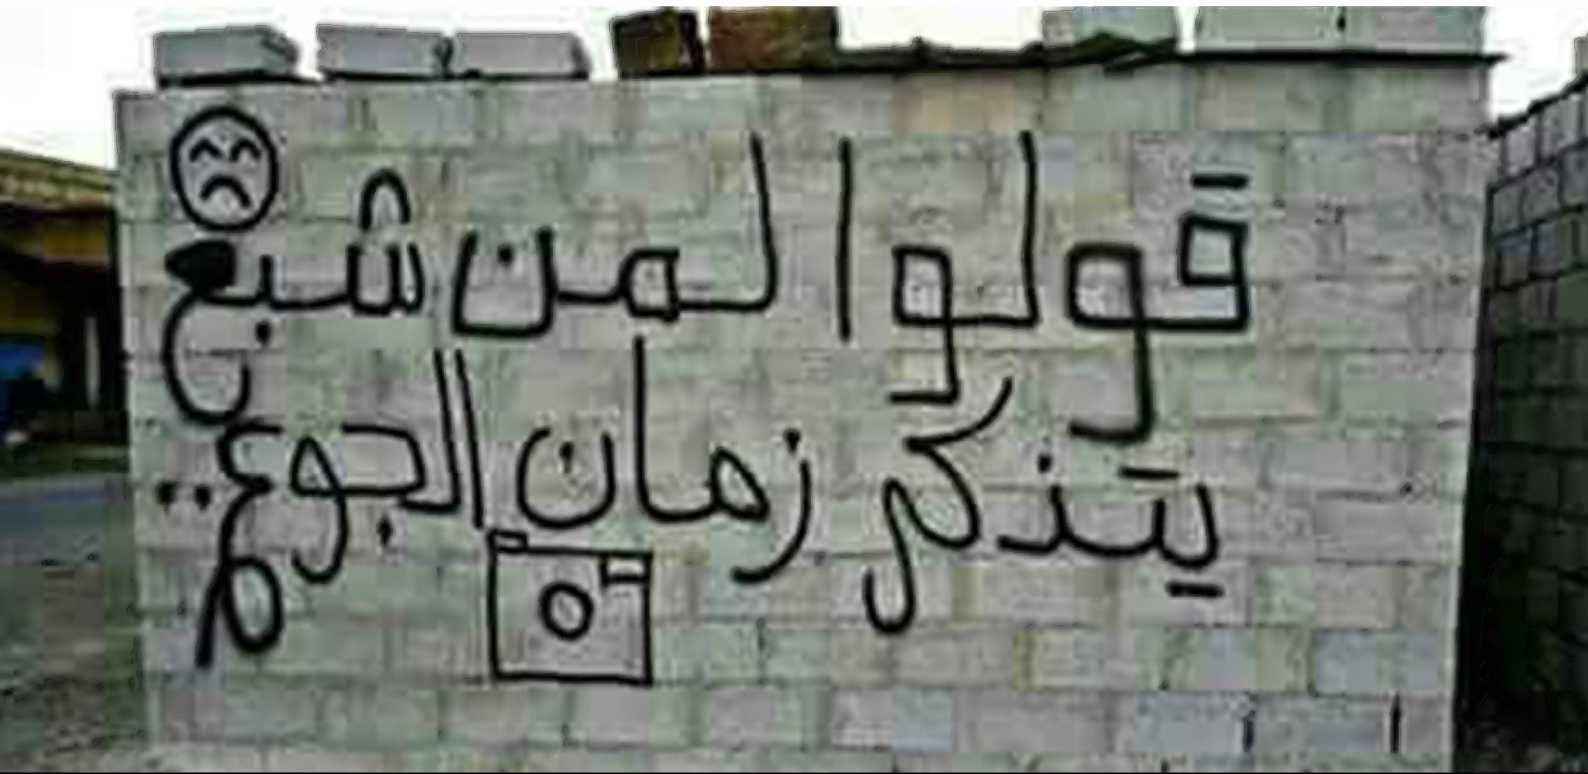 قولوا المن شبع
يتذكر زمان الجوع..